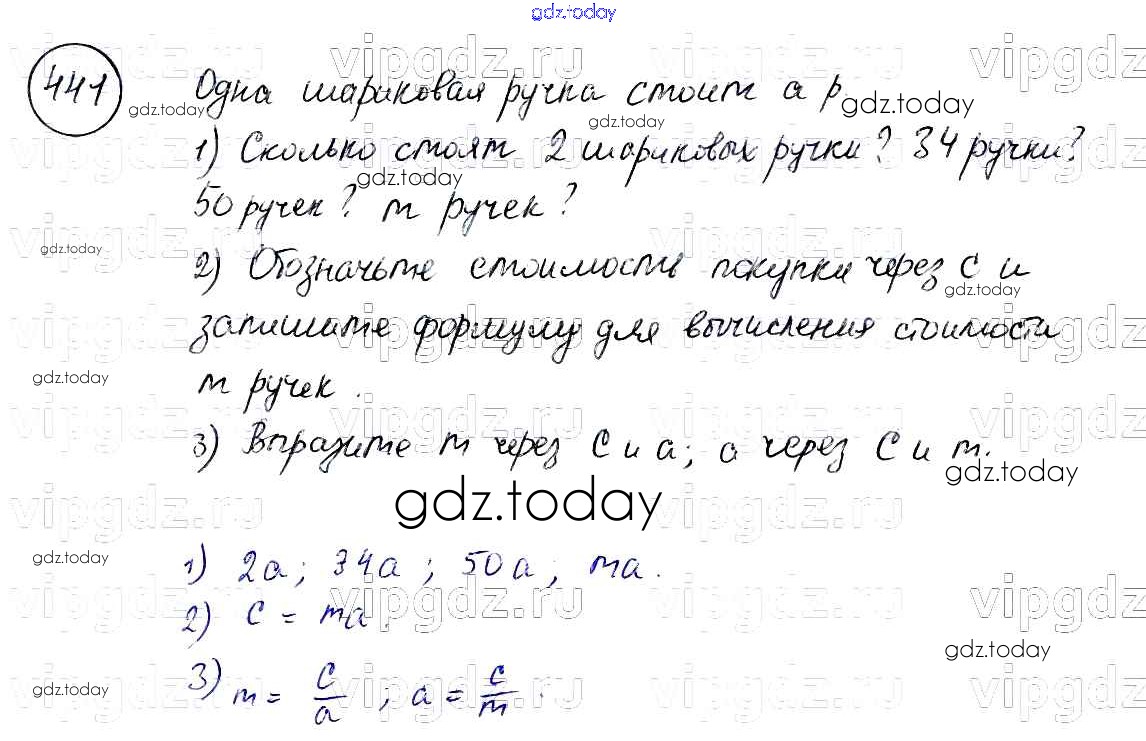 gdz.today
441
Одна шариковая ручка стоит a р.
1) Сколько стоят 2 шариковых ручки? 34 ручки?
50 ручек? m ручек?
2) Обозначьте стоимость покупки через C и
запишите формулу для вычисления стоимости
m ручек.
3) Выразите m через C и a; a через C и m.
gdz.today
1) 2a; 34a; 50a; ma.
2) C = ma.
3) m = C/a; a = C/m.